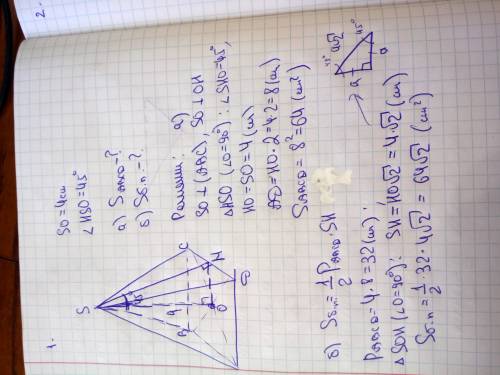 1.
S
4
45°
A
B
C
H
O
D
SO = 4см
∠HSO = 45°
а) SABCD = ?
б) Sб.п. = ?
Решение:
а)
SO ⊥ (ABC), SO ⊥ OH
△HSO (∠O = 90°): ∠SHO = 45°,
HO = SO = 4 (см)
AD = HO · 2 = 4 · 2 = 8 (см)
SABCD = 8² = 64 (см²)
б) Sб.п. = 1/2 PABCD · SH
PABCD = 4 · 8 = 32 (см);
△SOH (∠O = 90°): SH = HO√2 = 4√2 (см)
Sб.п. = 1/2 · 32 · 4√2 = 64√2 (см²)
→
45°
a√2
45°
a
a
2.